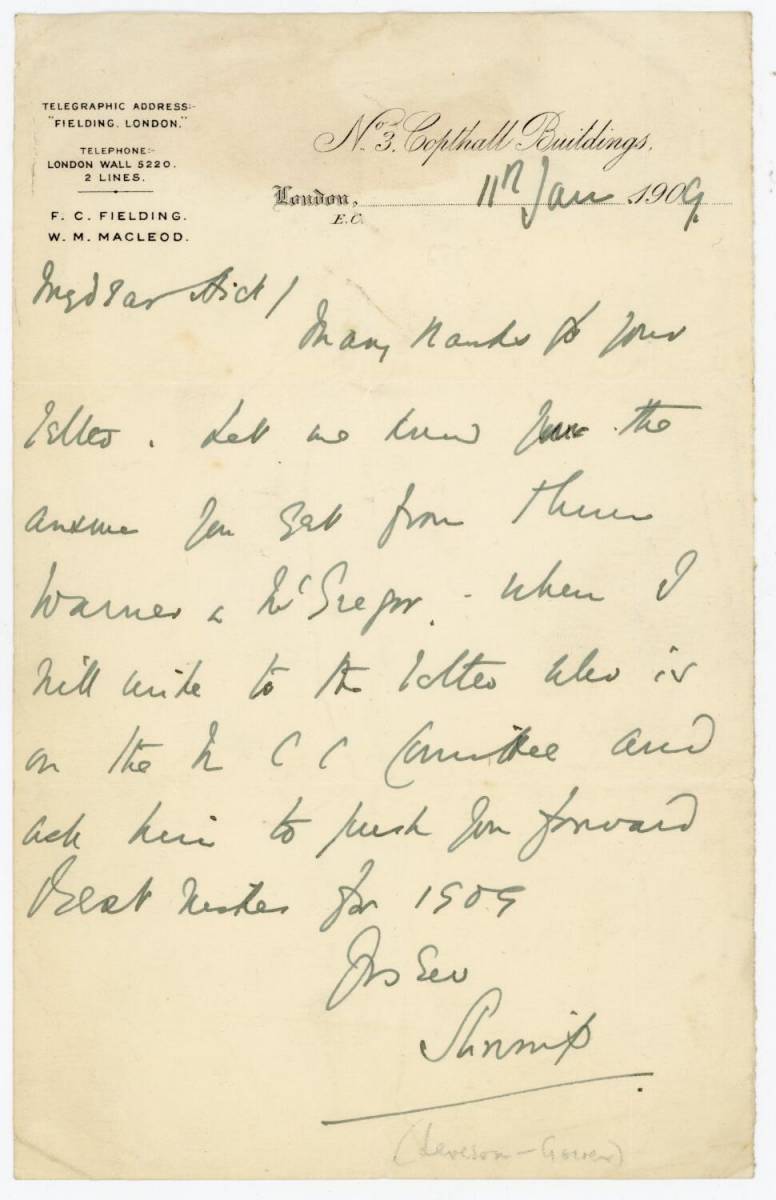 TELEGRAPHIC ADDRESS:-
"FIELDING. LONDON."
TELEPHONE:-
LONDON WALL 5220.
2 LINES.
F. C. FIELDING.
W. M. MACLEOD.
No. 3, Copthall Buildings,
London, 11th Jan 1909
E.C.
My dear Dick/
Many thanks for your
letter. Let me know the
answer you get from
Warner & McGregor. - when I
will write to the latter who is
on the M C C Committee and
ask him to push you forward
Best wishes for 1909
Yrs Ever
Shrimp
(Leveson-Gower)